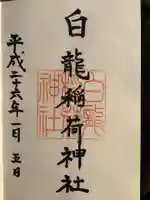 白龍稲荷神社
平成二十六年一月五日
白龍
神社